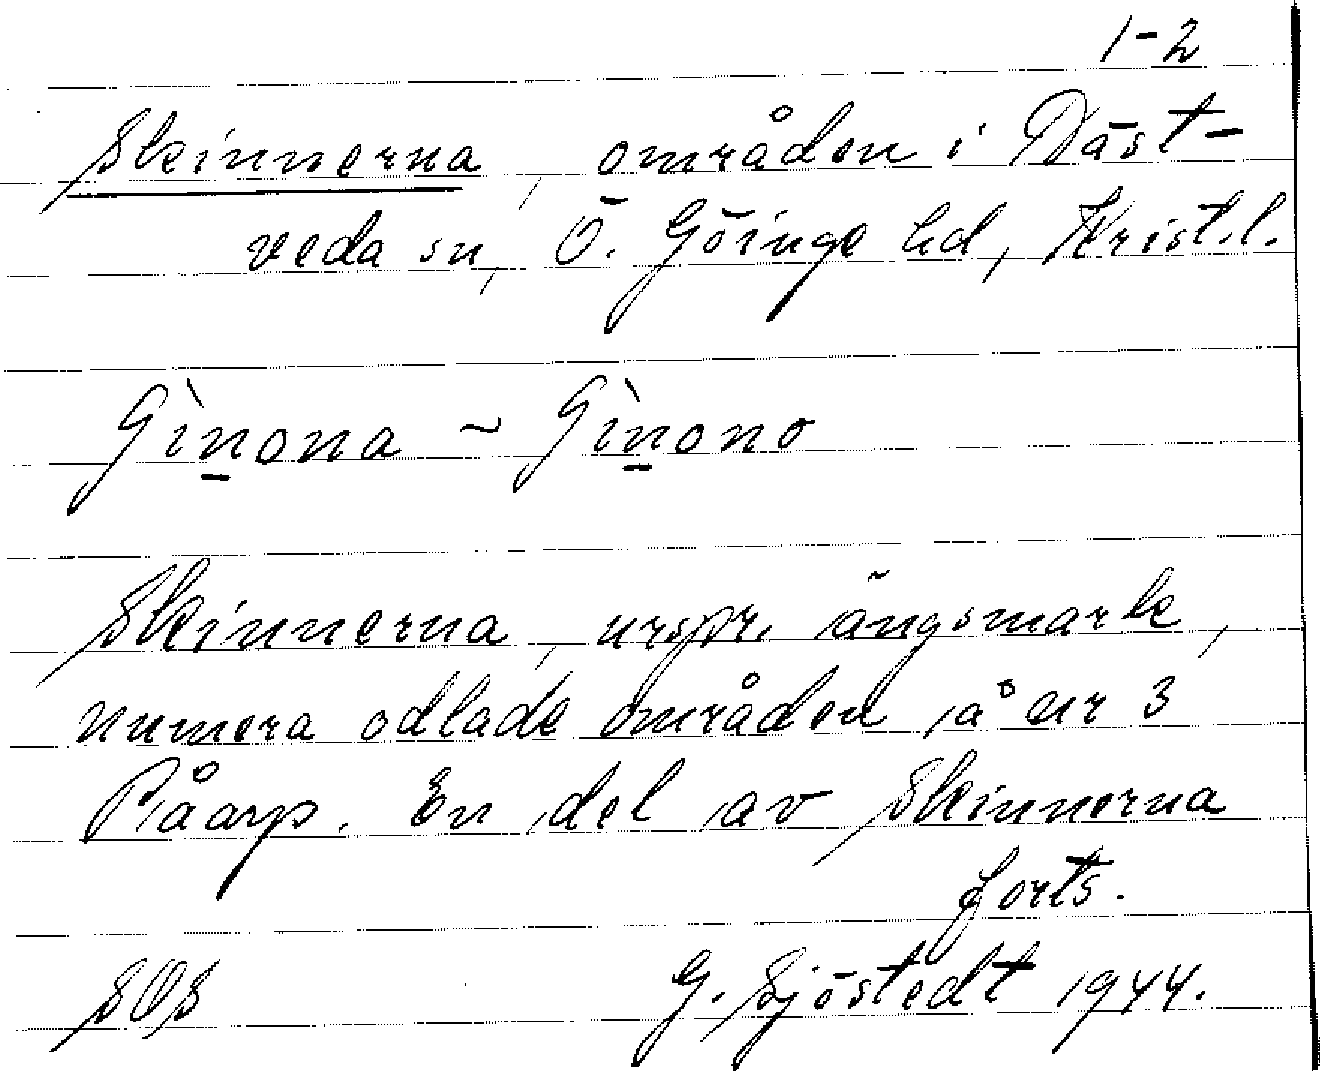 1-2
Skinnerna, områden i Väst-
veda sn, Ö. Göinge hd, Krist.l.
Gìnona ~ Gìnono
Skinnerna, urspr. ängsmark,
numera odlade områden å nr 3
Påarp. En del av Skinnerna
forts.
SOS
G. Sjöstedt 1944.